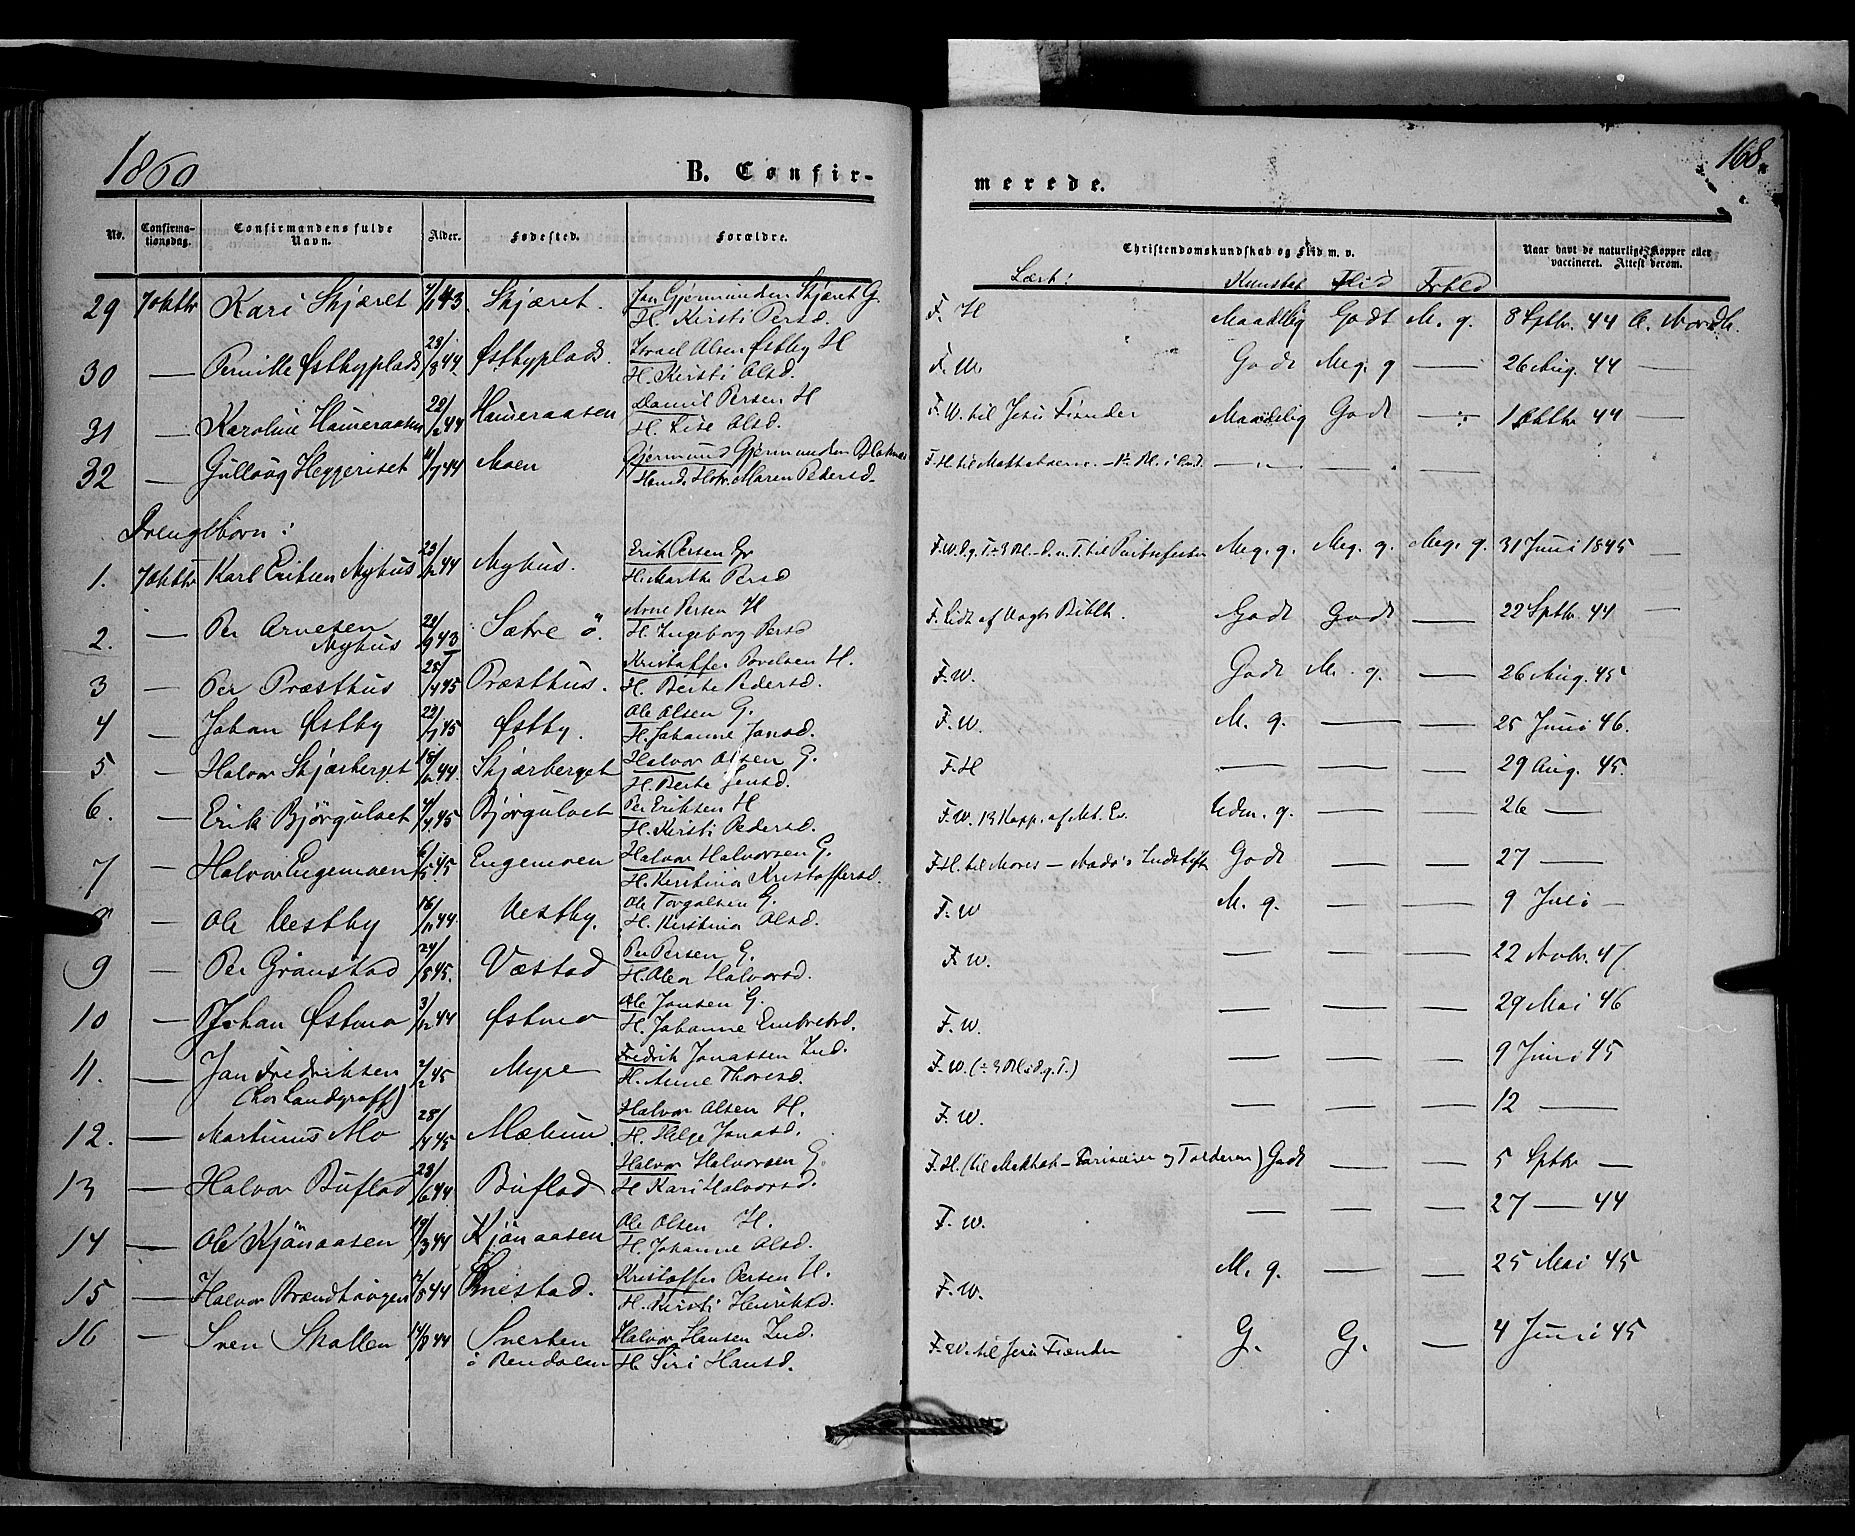 1860
B. Confir-
merede.
168.
No.
Confirma-
tionsdag.
Confirmandens fulde
Navn.
Alder.
Fødested.
Forældre.
Christendomskundskab og Flid m. v.
Naar havt de naturlige Kopper eller
vaccineret. Attest derom.
Lært:
Kundskab
Flid
Forhld
29 7 Oktbr Kari Skjæret 43 Skjæret. Jan Gjermundsen Skjæret G.
H. Kirsti Persd.
F. H Maadelig Godt M. g. 8 Sptbr. 44
30 — Pernille Østbyplads 23/8 44 Østbyplads. Israel Olsen Østby H
H. Kersti Olsd.
F. W Godt Meg. g — 26 Aug. 44 —
31 — Karoline Hameraasen 22/2 44 Hameraasen Daniel Persen H
H. Lise Olsd.
F. W. til Jesu Fiender Maadelig Godt 1 Oktbr 44 —
32 — Gulloug Heggeriset 11/7 44 Moen Gjermund Gjermundsen
Maren Pedersd.
F. H. til — — —
Drengebørn:
1. 7 Oktbr Karl Eriksen Nyhus 23/12 44 Nyhus. Erik Persen Gr
H. Marthe Persd
Meg. g. Meg. g. Meg. g. 31 Juni 1845 —
2. — Per Arnesen
Nyhus
43 Sætre ö. Arne Persen H
H. Ingeborg Persd
F. Lidt af Vogts Bibelh. Godt Godt — 22 Sptbr. 44 —
3 — Per Præsthus 25/4 45 Præsthus. Kristoffer Povelsen H.
H. Berte Pedersd.
F. W. Godt M. g. — 26 Aug. 45
4 — Johan Østby 22/1 45 Østby. Ole Olsen G.
H. Johanne Jonsd.
F. W. M. g. — — 25 Juni 46.
5 — Halvor Skjærberget 18/12 44. Skjærberget Halvor Olsen G.
H. Berte Jensd.
F. H — — — 29 Aug. 45.
6. — Erik Bjørgulvet 45 Bjørgulvet Per Eriksen H
H. Kirsti Pedersd.
F. W. 13 Kapp. af Mt. Ev. Udm. g. — — 26 —
7 — Halvor Engemoen 45 Engemoen Halvor Halvorsen G.
H. Kerstina Kristoffersd.
Godt — — 27 —
8 — Ole Vestby 16/11 44 Vestby. Ole Torgalsen G.
H. Kirstina Olsd.
F. W M. g. — — 9 Juli —
9 — Per Grønstad 24/5 45. Væstad Per Persen G.
H. Olea Halvorsd.
F. W. — — — 22 Novbr. 47.
10 — Johan Østmo 3/12 44 Østmo Ole Jonsen G.
H. Johanne Embretsd.
F. W. — — — 29 Mai 46
11. — Jan Fredriksen
(hos Landgraff)
2/2 45 Myre Fredrik Jonassen Ind.
H. Anne Thoresd.
— — — 9 Juni 45
12. — Martinus Mo 28/4 45 Mælum Halvor Olsen H.
H. Helge Jonasd.
F. W. — — — 12 —
13 — Halvor Buflod 29/6 44 Buflod Halvor Halvorsen G
H Kari Halvorsd.
F. H. (til Makkab — Farisæer og Tolderen) Godt — — 5 Sptbr —
14 — Ole Kjönaasen 19/3 44 Kjönaasen Ole Olsen H.
H. Johanne Olsd.
F. W. — — — 27 — 44
15 — Halvor Brændhougen 44 Kristoffer Persen H.
H. Kirsti Henriksd.
F. W. M. g. — — 25 Mai 45
16 — Sven Skallen 14/8 44 Snerten
ö Rendalen
Halvor Hansen Ind.
H. Siri Hansd.
F. W. til Jesu Fiender G. G. — 4 Juni 45